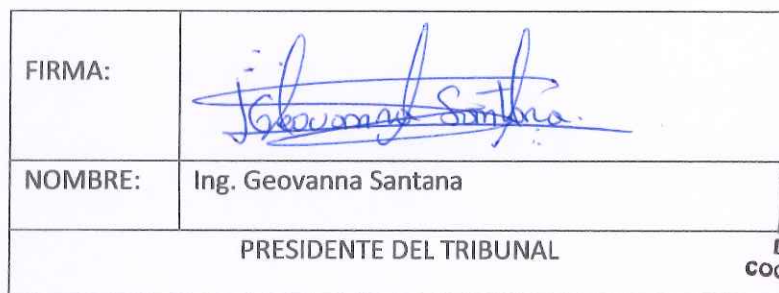 FIRMA:
Geovanna Santana.
NOMBRE: Ing. Geovanna Santana
PRESIDENTE DEL TRIBUNAL